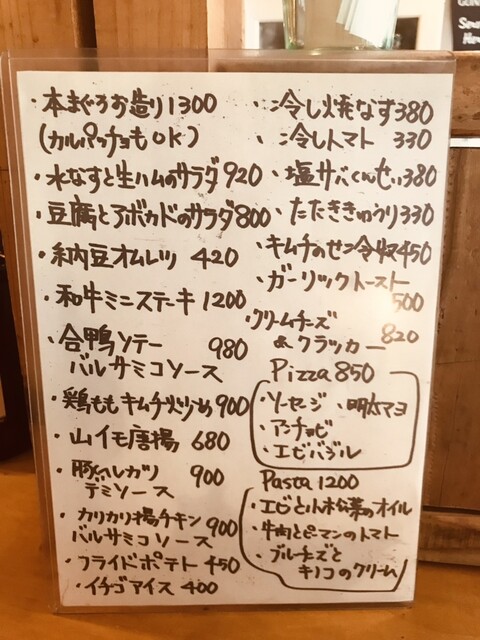 ・本まぐろお造り1300
(カルパッチョもOK)
・水なすと生ハムのサラダ920
・豆腐とアボカドのサラダ800
・納豆オムレツ 420
・和牛ミニステーキ 1200
・合鴨ソテー 980
バルサミコソース
・鶏ももキムチ炒め900
・山イモ唐揚 680
・豚ヒレカツ 900
デミソース
・カリカリ揚チキン 900
バルサミコソース
・フライドポテト 450
・イチゴアイス 400
・冷し焼なす380
・冷しトマト 330
・塩サバくんせい380
・たたききゅうり330
・キムチのセン令奴450
・ガーリックトースト
500
・クリームチーズ
&クラッカー 820
Pizza 850
・ソーセージ ・明太マヨ
・アンチョビ
・エビバジル
Pasta 1200
・エビと小松菜のオイル
・牛肉とピーマンのトマト
・ブルーチーズと
キノコのクリーム